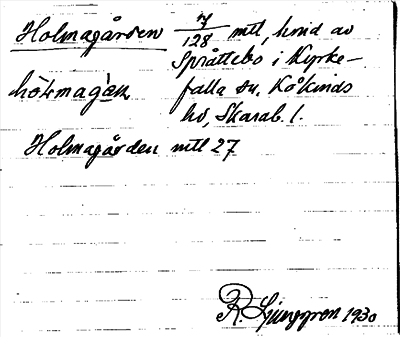 Holmagården 7/128 mtl, hvid av
Språttebo i Kyrke-
hólmagàɳ falla sn. Kåkinds
hd, Skarab. l.
Holmagården mtl 27
R. Ljunggren 1930